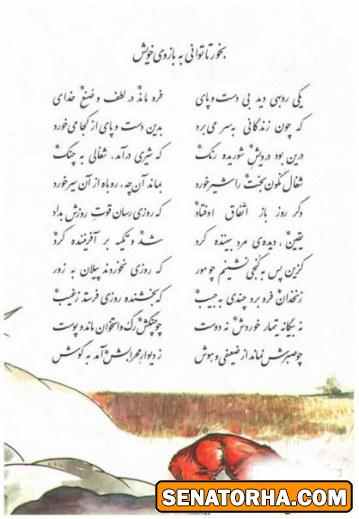 بخور تا توانی به بازوی خویش
یکی روبهی دید بی دست و پای فرو ماند در لطف و صُنع خدای
که چون زندگانی به سر می برد بدین دست و پای از کجا می خورد
درین بود درویش شوریده رنگ که شیری درآمد، شغالی به چنگ
شغال نگون بخت را شیر خورد بماند آن چه، روباه از آن سیر خورد
دگر روز باز اتّفاق اوفتاد که روزی رسان قوت روزش بداد
یقین، دیده ی مرد بیننده کرد شد و تکیه بر آفریننده کرد
کزین پس به کنجی نشینم چو مور که روزی نخوردند پیلان به زور
زنخدان فرو برد چندی به جیب که بخشنده روزی فرستد ز غیب
نه بیگانه تیمار خوردش نه دوست چو چنگش رگ و استخوان ماند و پوست
چو صبرش نماند از ضعیفی و هوش ز دیوار محرابش آمد به گوش
SENATORHA.COM